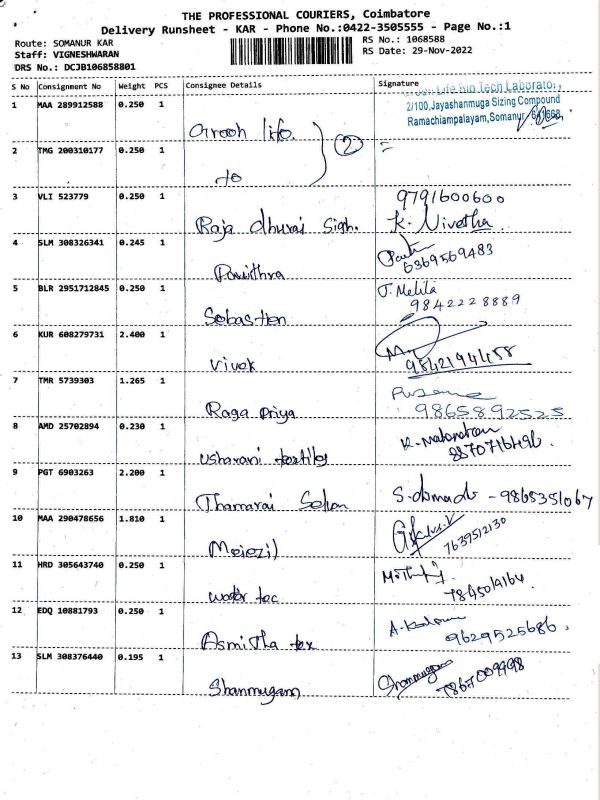 THE PROFESSIONAL COURIERS, Coimbatore
Delivery Runsheet - KAR - Phone No.:0422-3505555 - Page No.:1
Route: SOMANUR KAR
RS No.: 1068588
Staff: VIGNESHWARAN
RS Date: 29-Nov-2022
DRS No.: DCJB106858801
S No Consignment No Weight PCS Consignee Details Signature
1 MAA 289912588 0.250 1
Life Tech Laboratory
2/100,Jayashanmuga Sizing Compound
Ramachiampalayam,Somanur
life
2 TMG 200310177 0.250 1
2
to
3 VLI 523779 0.250 1
9791600600
Raja dhurai K. Nivetha
4 SLM 308326341 0.245 1
6369569483
Pavithra
5 BLR 2951712845 0.250 1
9842228889
Sebastien
6 KUR 608279731 2.400 1
9842194458
Vivek
7 TMR 5739303 1.265 1
9865892525
Raga Priya
8 AMD 25702894 0.230 1
8870716496
Usharani textiles
9 PGT 6903263 2.200 1
9865351067
Thamarai
10 MAA 290478656 1.810 1
7639512130
11 HRD 305643740 0.250 1
water tec
12 EDQ 10881793 0.250 1
9629525686
Asmitha tex
13 SLM 308376440 0.195 1
Shanmugam
Shanmugam